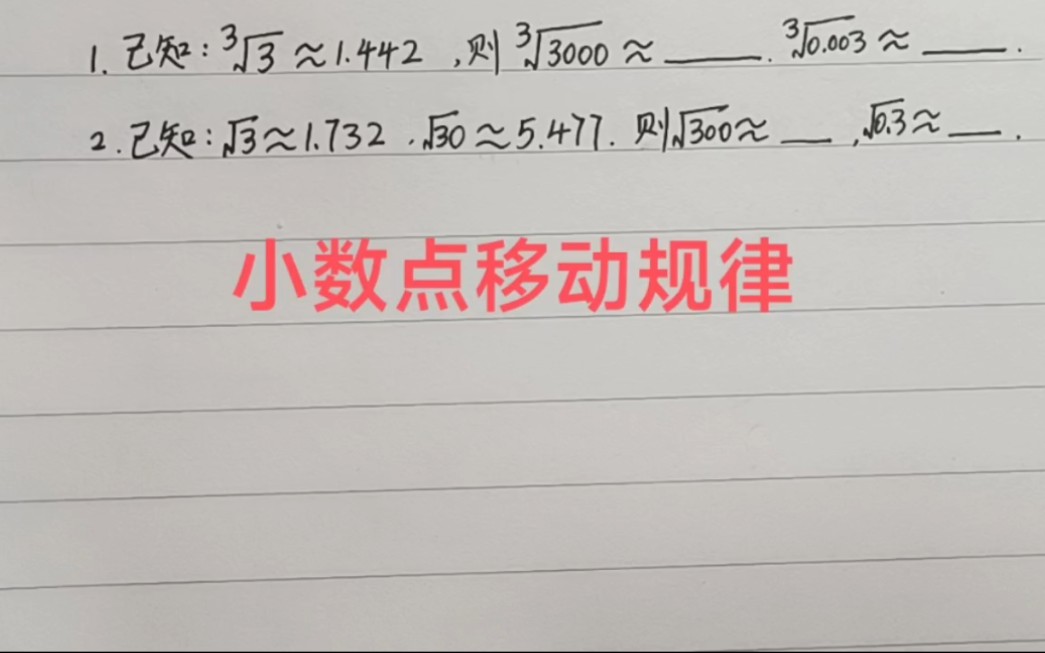 1. 已知: ³√3 ≈ 1.442 ,则 ³√3000 ≈ ____. ³√0.003 ≈ ____.
2. 已知: √3 ≈ 1.732 . √30 ≈ 5.477. 则 √300 ≈ __ , √0.3 ≈ __ .
小数点移动规律